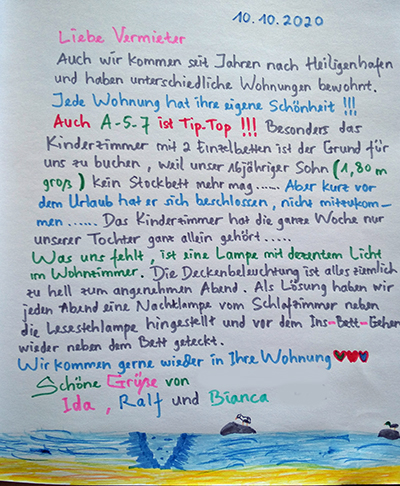 10.10.2020
Liebe Vermieter
Auch wir kommen seit Jahren nach Heiligenhafen
und haben unterschiedliche Wohnungen bewohnt.
Jede Wohnung hat ihre eigene Schönheit !!!
Auch A-5-7 ist Tip-Top !!! Besonders das
Kinderzimmer mit 2 Einzelbetten ist der Grund für
uns zu buchen, weil unser 16jähriger Sohn (1,80 m
groß) kein Stockbett mehr mag...... Aber kurz vor
dem Urlaub hat er sich beschlossen, nicht mitzukom-
men ...... Das Kinderzimmer hat die ganze Woche nur
unserer Tochter ganz allein gehört.....
Was uns fehlt, ist eine Lampe mit dezentem Licht
im Wohnzimmer. Die Deckenbeleuchtung ist alles ziemlich
zu hell zum angenehmen Abend. Als Lösung haben wir
jeden Abend eine Nachtlampe vom Schlafzimmer neben
die Lesestehlampe hingestellt und vor dem Ins-Bett-Gehen
wieder neben dem Bett gesteckt.
Wir kommen gerne wieder in Ihre Wohnung ♥♥♥
Schöne Grüße von
Ida, Ralf und Bianca